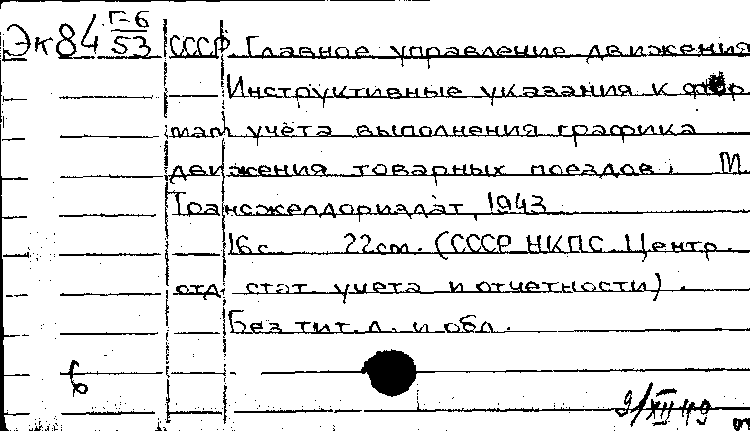 Эк84 Г-6/53 СССР Главное управление движения
Инструктивные указания к фор
мам учёта выполнения графика
движения товарных поездов. М.
Трансжелдориздат, 1943
16с 22см. (СССР НКПС. Центр.
отд. стат. учета и отчетности).
Без тит. л. и обл.
6
9/XII 49